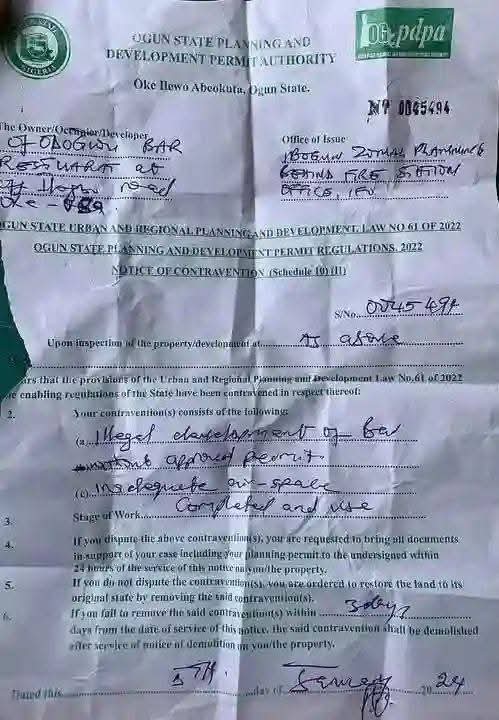 OGUN STATE PLANNING AND
DEVELOPMENT PERMIT AUTHORITY
Oke Ilewo Abeokuta, Ogun State.
OG pdpa
NIGERIA
Nº 0045494
The Owner/Occupier/Developer
OF OLOGWU BAR
RESTUARAT at
road
Office of Issue
IBOGUN ZONAL PLANNING
BEHIND FIRE STATION
OFFICE, IFO
GUN STATE URBAN AND REGIONAL PLANNING AND DEVELOPMENT, LAW NO 61 OF 2022
OGUN STATE PLANNING AND DEVELOPMENT PERMIT REGULATIONS, 2022
NOTICE OF CONTRAVENTION (Schedule 10) (II)
S/No. 0045494
Upon inspection of the property/development at As above
ars that the provisions of the Urban and Regional Planning and Development Law No.61 of 2022
e enabling regulations of the State have been contravened in respect thereof:
2. Your contravention(s) consists of the following:
(a) Illegal development of Bar
without approved permit
(c) Inadequate air-space
3. Stage of Work Completed and use
4. If you dispute the above contravention(s), you are requested to bring all documents
in support of your case including your planning permit to the undersigned within
24 hours of the service of this notice on you/the property.
5. If you do not dispute the contravention(s), you are ordered to restore the land to its
original state by removing the said contravention(s).
6. If you fail to remove the said contravention(s) within 3 days
days from the date of service of this notice, the said contravention shall be demolished
after service of notice of demolition on you/the property.
Dated this 5TH day of January 2024